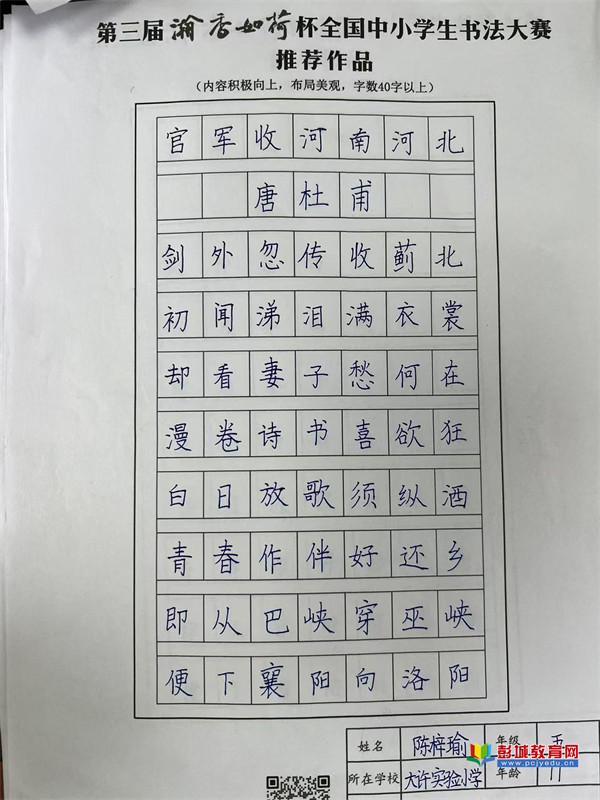 第三届瀚香如荷杯全国中小学生书法大赛
推荐作品
（内容积极向上，布局美观，字数40字以上）
官军收河南河北
唐杜甫
剑外忽传收蓟北
初闻涕泪满衣裳
却看妻子愁何在
漫卷诗书喜欲狂
白日放歌须纵酒
青春作伴好还乡
即从巴峡穿巫峡
便下襄阳向洛阳
姓名 陈梓瑜 年级 五
所在学校 大许实验小学 年龄 11
彭城教育网
www.pcjyedu.cn